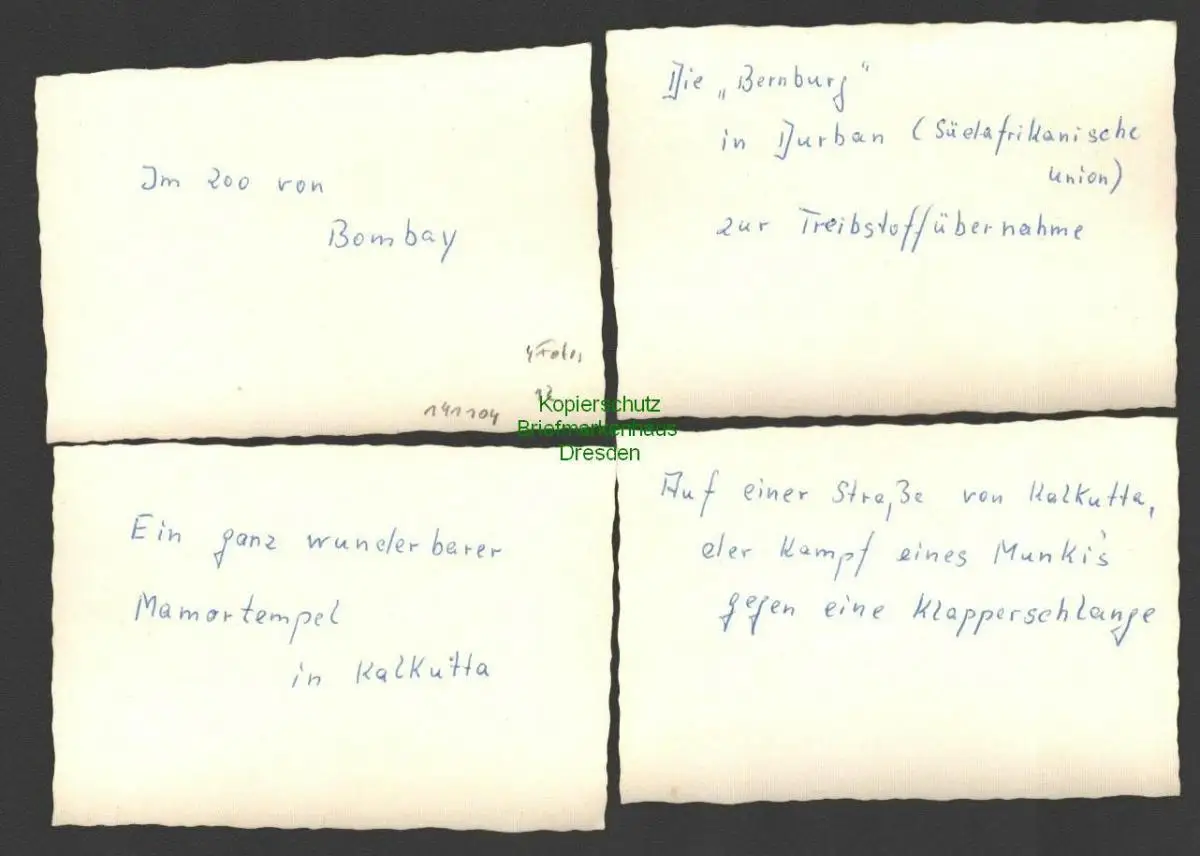 Im Zoo von
Bombay
4 Fotos
12
141104
Die „Bernburg"
in Durban (Südafrikanische
Union)
zur Treibstoffübernahme
Kopierschutz
Briefmarkenhaus
Dresden
Ein ganz wunderbarer
Mamortempel
in Kalkutta
Auf einer Straße von Kalkutta,
der Kampf eines Munki's
gegen eine Klapperschlange